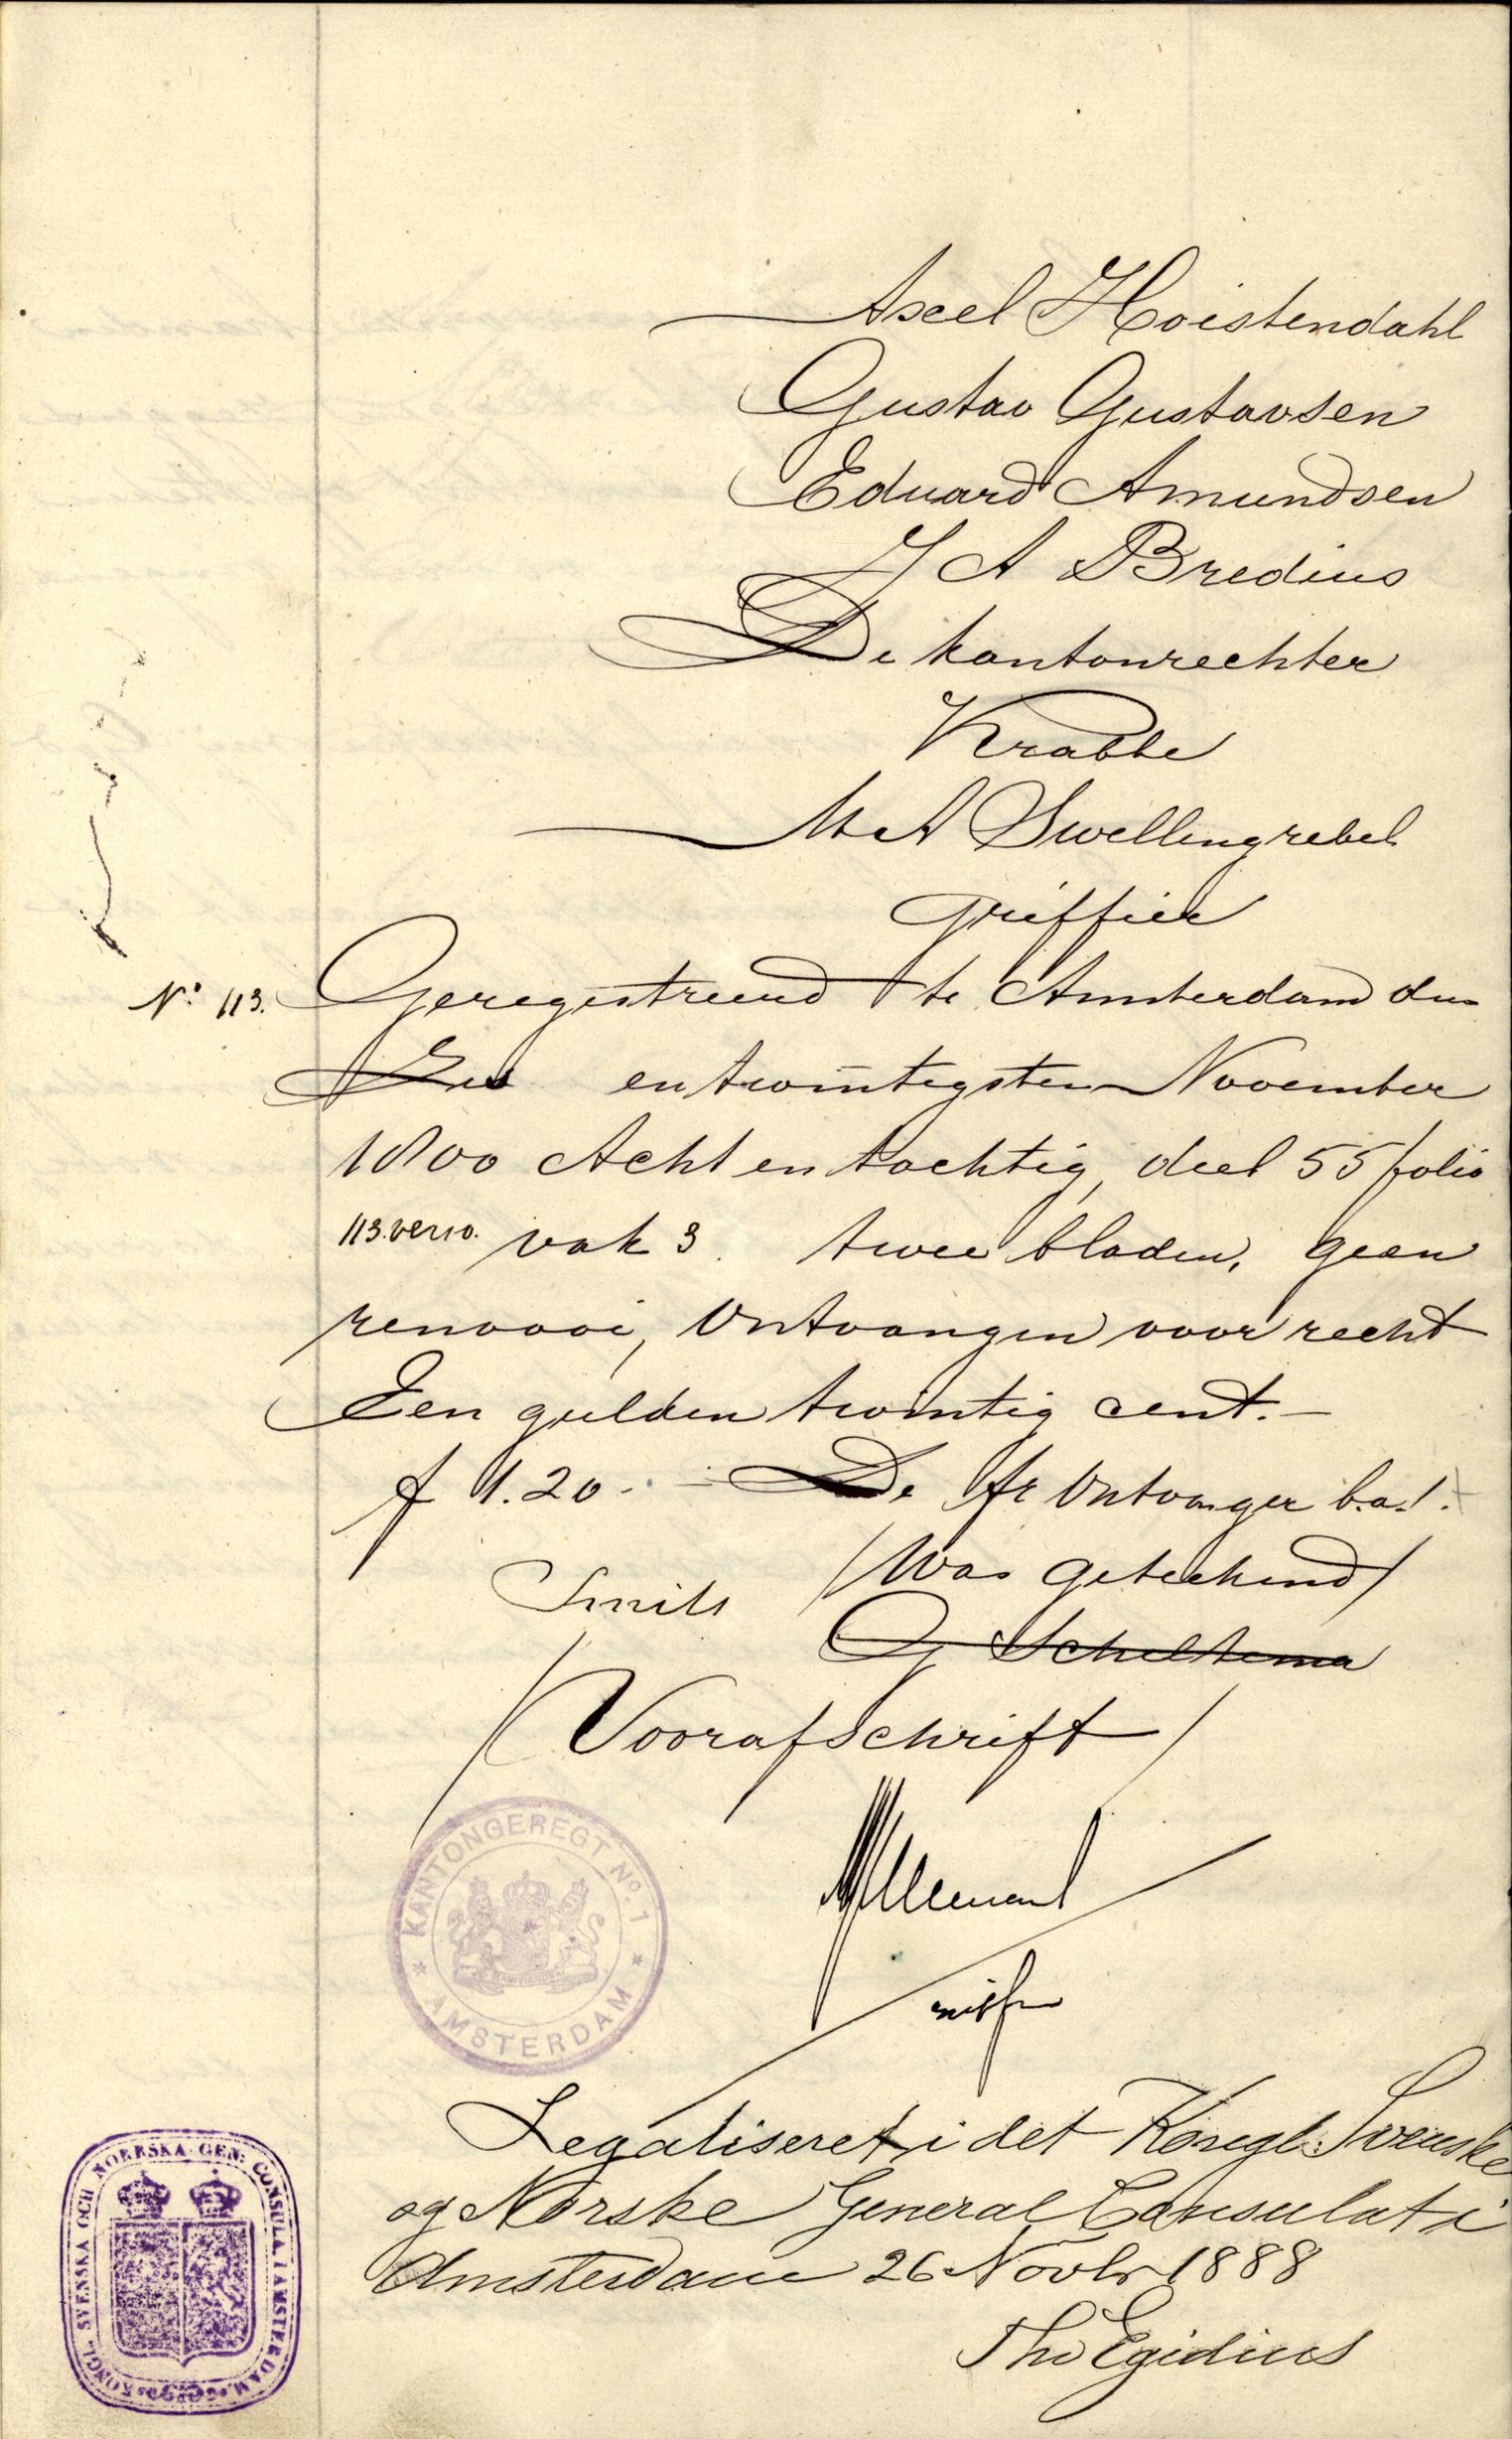 Axel Hoistendahl
Gustav Gustavsen
Eduard Amundsen
J A Bredius
De kantonrechter
Krabbe
M A Swellengrebel
Griffier
No. 113. Geregistreerd te Amsterdam den
Zes en twintigsten November
1800 Acht en tachtig, deel 55 folio
113. verso. vak 3. twee bladen, geen
renvooi, Ontvangen voor recht
Een gulden twintig cent. -
f 1.20. - De Ontvanger b.a.
Smits (Was geteekend)
G Scheltema
Voor afschrift
KANTONGEREGT No. 1
AMSTERDAM
Legaliseret i det Kongl. Svenske
og Norske General Consulat i
Amsterdam 26 Novbr 1888
Tho Egidius
KONGL. SVENSKA OCH NORRSKA GEN: CONSULA I AMSTERDAM